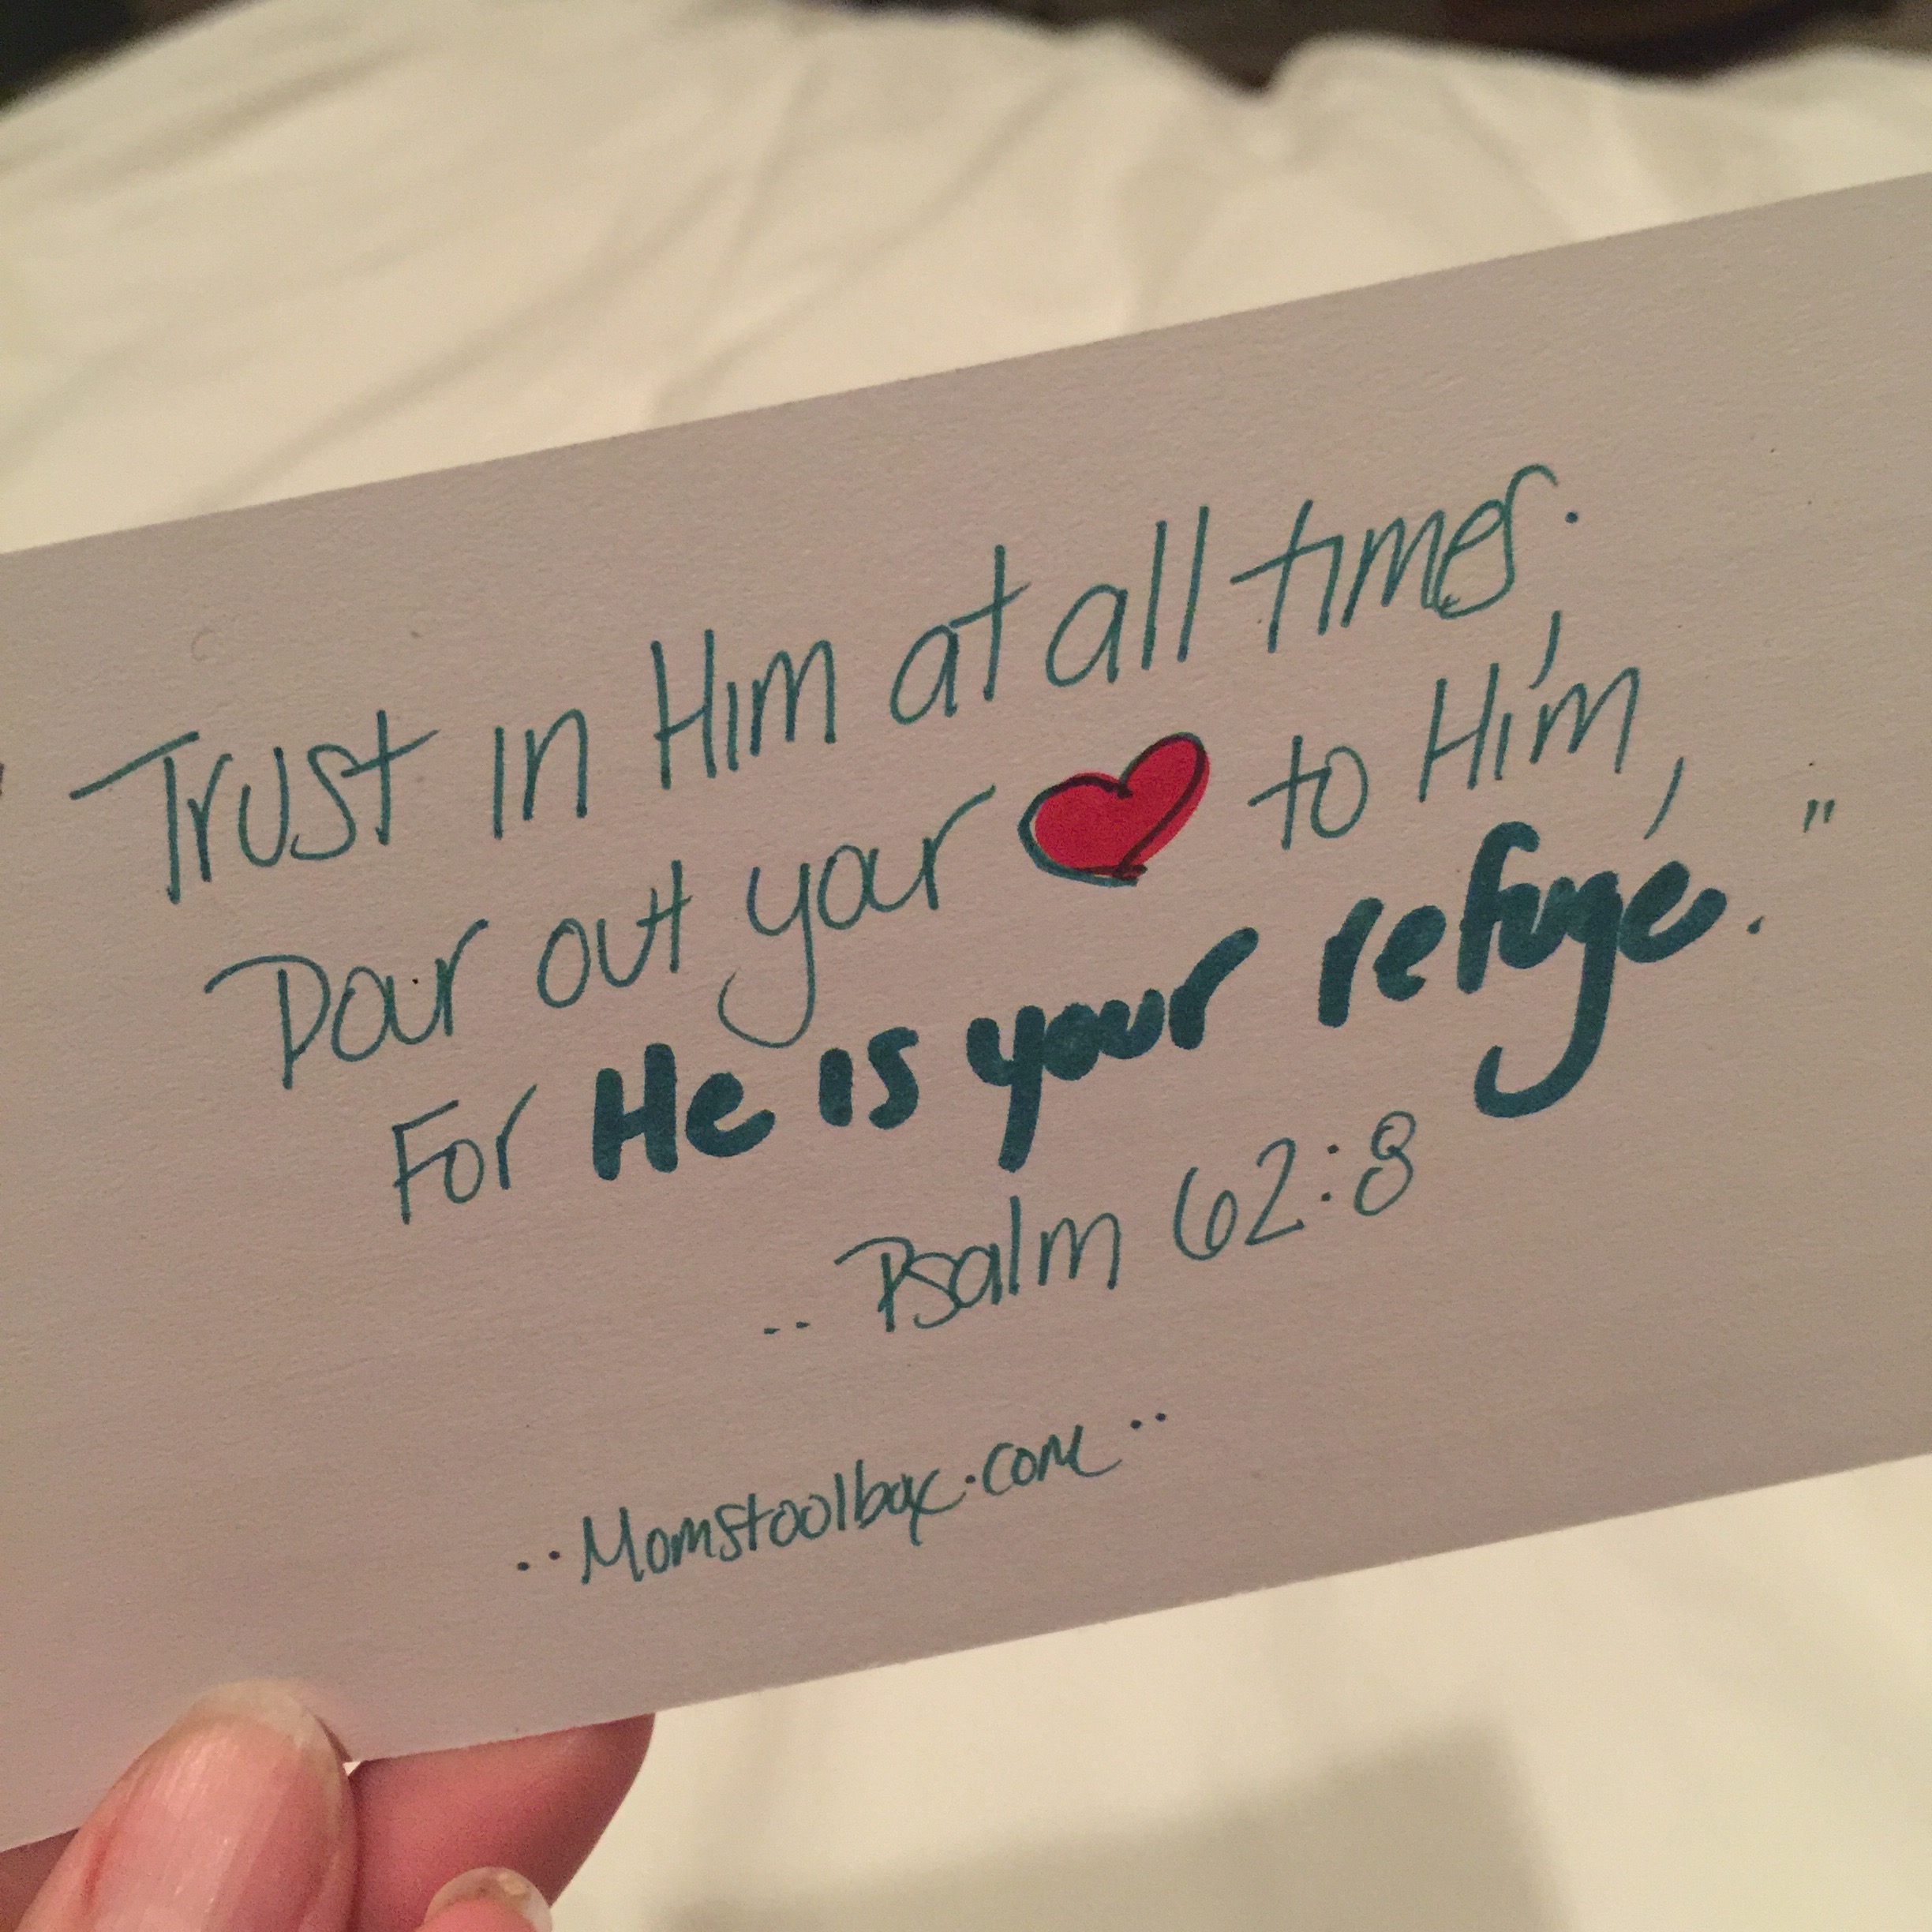 " Trust in Him at all times.
Pour out your ❤ to Him,
For He is your refuge."
.. Psalm 62:8
..Momstoolbox.com..